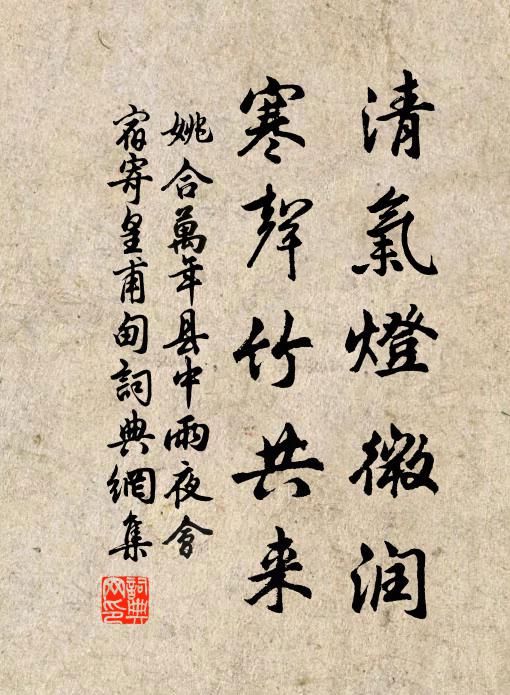 清氣燈微润
寒聲竹共来
姚合萬年县中雨夜會
宿寄皇甫甸詞典網集
詞典
网印